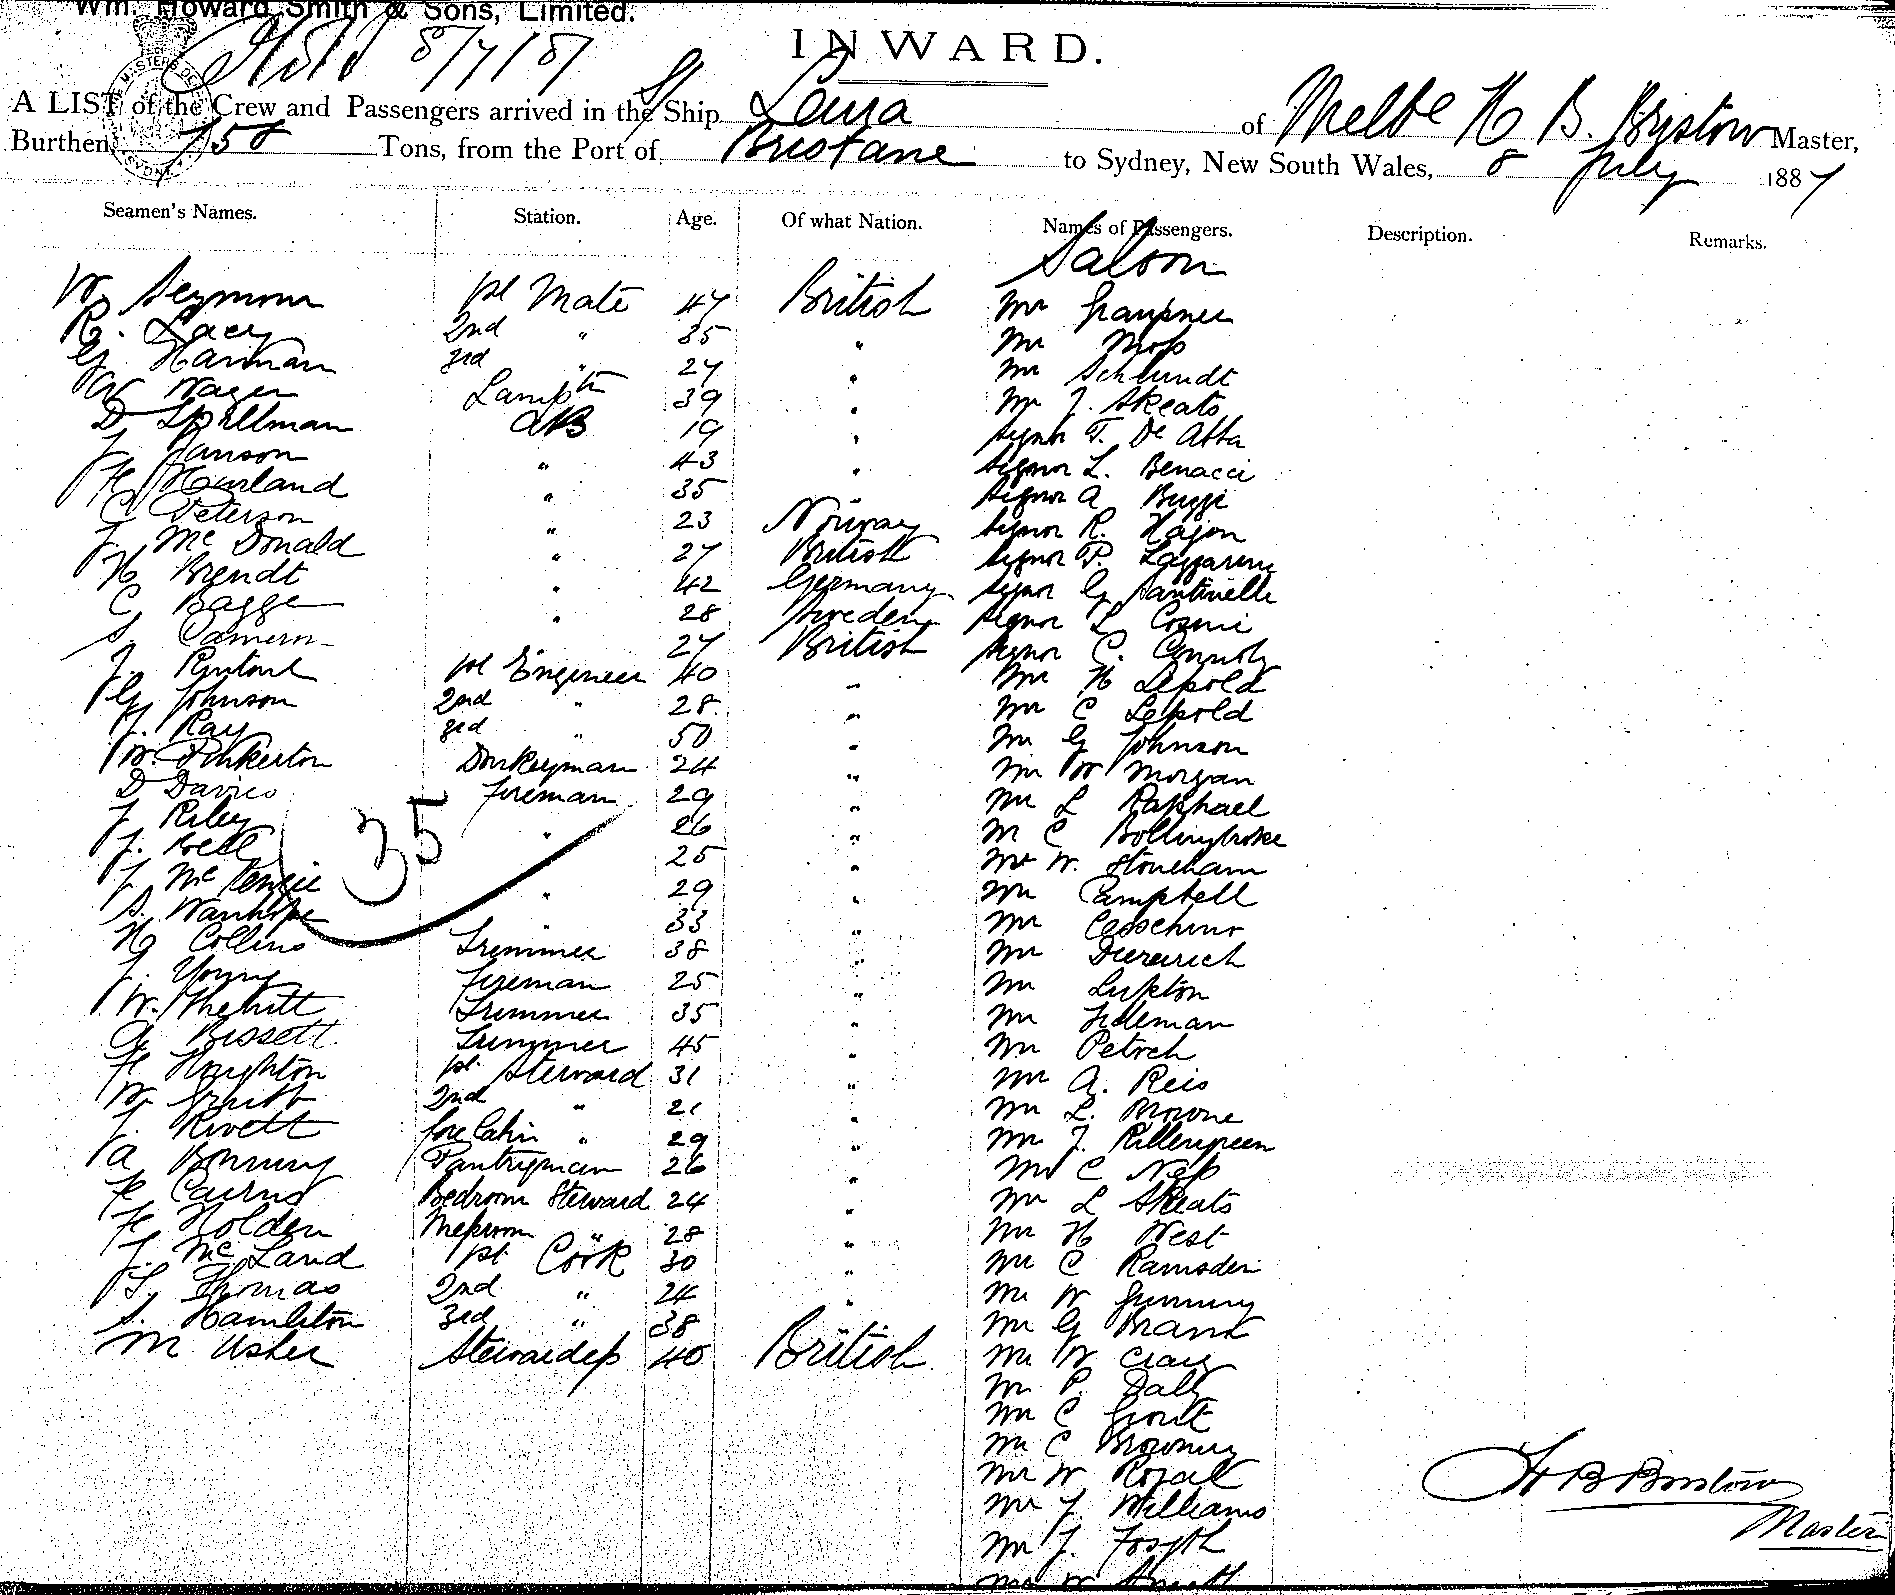 Wm. Howard Smith & Sons, Limited.
8/7/87
INWARD.
A LIST of the Crew and Passengers arrived in the S/ Ship Leura of Melbe H B. Bristow Master,
Burthen 758 Tons, from the Port of Brisbane to Sydney, New South Wales, 8 July 1887
Seamen's Names. Station. Age. Of what Nation. Names of Passengers. Description. Remarks.
Saloon
W Seymour 1st Mate 47 British Mr Graupner
R. Lacey 2nd " 35 " Mr Moss
G Harman 3rd " 27 " Mr Schlundt
W Wager Lamptr 39 " Mr J. Skeats
D Spillman AB 19 " Signor T. De Alba
J Janson " 43 " Signor L. Benacci
H Hurland " 35 Signor A Buzzi
C Peterson " 23 Norway Signor R. Hazon
J. Mc Donald " 27 British Signor P. Lazzarini
H Brendt " 42 Germany Signor G Santinelle
C Bagge " 28 Sweden Signor L Cosmi
S Camern 27 British Signor C. Connoly
J. Rintoul 1st Engineer 40 " Mr H Lepold
G Johnson 2nd " 28 " Mr C Lepold
J. Ray 3rd " 50 " Mr G Johnson
W. Pinkerton Donkeyman 24 " Mr W Morgan
D Davies Fireman 29 " Mr L Raphael
J Riley " 26 " M C Bollingbroke
J. Bell 25 " Mr W. Stoneham
J McKenzie " 29 " Mr Campbell
S. Wanhope 33 " Mr Ceschino
35
Hy Collins Trimmer 38 " Mr
J. Young Fireman 25 " Mr Lupton
W. Trimmer 35 " Mr
A Bissett Trimmer 45 " Mr Petrch
H Houghton 1st Steward 31 " Mr A. Reis
W 2nd " 21 " Mr L. Browne
J. Rivett fore Cabin " 29 " Mr J.
A Bonning Pantryman 26 " Mr C Ness
H Cairns Bedroom Steward 24 " Mr L Skeats
H Holden Messroom " 28 " Mr H West
J. Mc Land 1st Cook 30 " Mr C Ramsden
S. Thomas 2nd " 24 " Mr W Gunning
S. Hamilton 3rd " 38 Mr G Brand
M Usher Stewardess 40 British Mr W Craig
Mr P. Daly
Mr C Grout
Mr C Browning
Mr W Royal
Mr J. Williams
Mr J. Forsyth
H B Bristow
Master